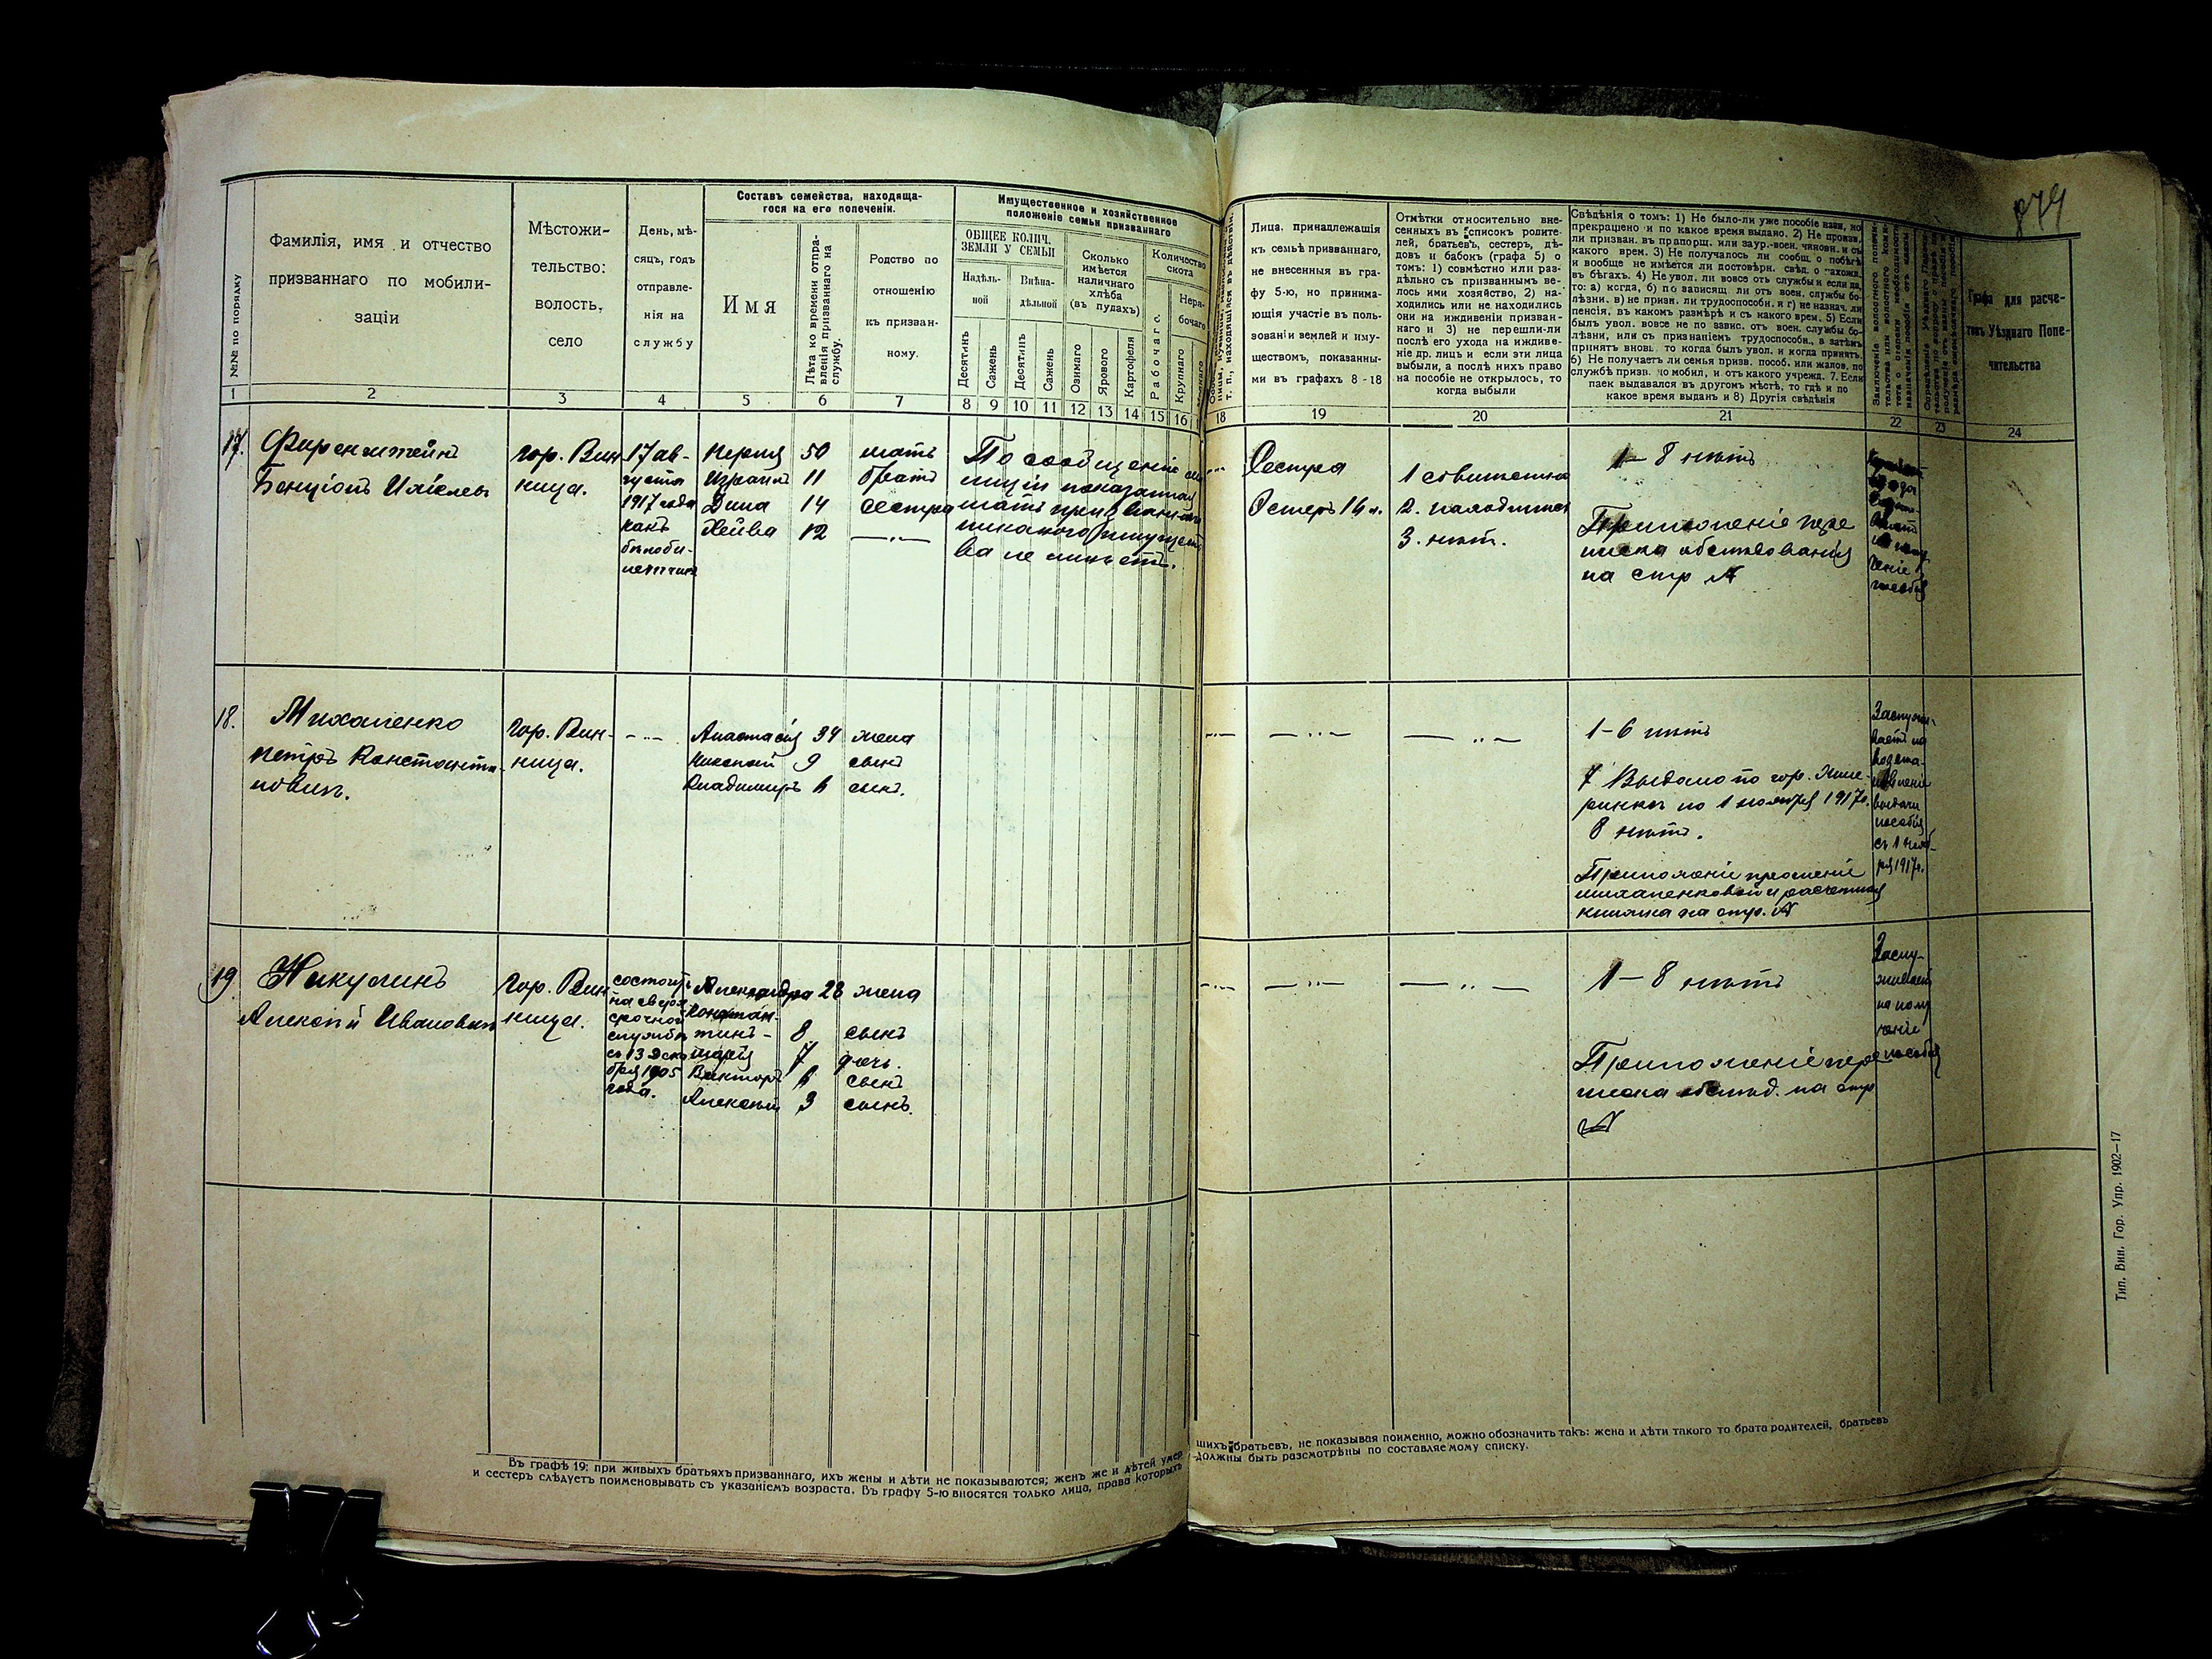 879
№№ по порядку
Фамилія, имя и отчество
призваннаго по мобили-
заціи
Мѣстожи-
тельство:
волость,
село
День, мѣ-
сяцъ, годъ
отправле-
нія на
службу
Составъ семейства, находяща-
гося на его попеченіи.
Имя
Лѣта ко времени отпра-
вленія призваннаго на
службу.
Родство по
отношенію
къ призван-
ному.
Имущественное и хозяйственное
положеніе семьи призваннаго
ОБЩЕЕ КОЛИЧ.
ЗЕМЛИ У СЕМЬИ
Надѣль-
ной
Внѣна-
дѣльной
Десятинъ
Сажень
Десятинъ
Сажень
Сколько
имѣется
наличнаго
хлѣба
(въ пудахъ)
Озимаго
Ярового
Картофеля
Количество
скота
Рабочаго
Нера-
бочаго
Крупнаго
т. п., находящійся въ дѣйствіи.
Лица, принадлежащія
къ семьѣ призваннаго,
не внесенныя въ гра-
фу 5-ю, но принима-
ющія участіе въ поль-
зованіи землей и иму-
ществомъ, показанны-
ми въ графахъ 8-18
Отмѣтки относительно вне-
сенныхъ въ списокъ родите-
лей, братьевъ, сестеръ, дѣ-
довъ и бабокъ (графа 5) о
томъ: 1) совмѣстно или раз-
дѣльно съ призваннымъ ве-
лось ими хозяйство, 2) на-
ходились или не находились
они на иждивеніи призван-
наго и 3) не перешли-ли
послѣ его ухода на иждиве-
ніе др. лицъ и если эти лица
выбыли, а послѣ нихъ право
на пособіе не открылось, то
когда выбыли
Свѣдѣнія о томъ: 1) Не было-ли уже пособіе назн. но
прекращено и по какое время выдано. 2) Не произв.
ли призван. въ прапорщ. или заур.-воен. чиновн. и съ
какого врем. 3) Не получалось ли сообщ. о побѣгѣ
и вообще не имѣется ли достовѣрн. свѣд. о нахожд.
въ бѣгахъ. 4) Не увол. ли вовсе отъ службы и если да,
то: а) когда, б) по зависящ. ли отъ воен. службы бо-
лѣзни, в) не призн. ли трудоспособн. и г) не назнач. ли
пенсія, въ какомъ размѣрѣ и съ какого врем. 5) Если
былъ увол. вовсе не по завис. отъ воен. службы бо-
лѣзни, или съ признаніемъ трудоспособн., а затѣмъ
принятъ вновь, то когда былъ увол. и когда принятъ.
6) Не получаетъ ли семья призв. пособ. или жалов. по
службѣ призв. по мобил. и отъ какого учрежд. 7. Если
паек выдавался въ другомъ мѣстѣ, то гдѣ и по
какое время выданъ и 8) Другія свѣдѣнія
Графа для расче-
товъ Уѣзднаго Попе-
чительства
1 2 3 4 5 6 7 8 9 10 11 12 13 14 15 16 18 19 20 21 22 23 24
17.
Фиренштейнъ
Бенціонъ Ихіелевъ
гор. Вин
ница.
17 ав-
густа
1917 года
какъ
бѣлоби-
летчикъ
Перля 50 мать
Израиль 11 братъ
Дина 14 сестра
Хейва 12 —"—
По сообщенію
показанная
мать
никакого имущест
ва не имѣетъ.
Сестра
Эстеръ 14 л.
1 совмѣстно
2. находится
3. нѣтъ.
1—8 нѣтъ
Приложеніе пере
писка обслѣдованія
на стр №
18.
Михаленко
Петръ Константи-
новичъ.
гор. Вин-
ница.
— " —
Анастасія 34 жена
Николай 9 сынъ
Владимиръ 6 сынъ.
— " —
— " —
— " —
1-6 нѣтъ
7 Выдано по гор. Жме-
ринкѣ по 1 ноября 1917 г.
8 нѣтъ.
Приложеніе прошеніе
Михаленковой и расчетная
книжка на стр. №
Заслужи-
ваетъ на
возста-
новленіе
выдачи
пособія
съ 1 нояб-
ря 1917 г.
19
Никулинъ
Алексѣй Ивановичъ
гор. Вин
ница.
состоитъ
на сверх
срочной
службѣ
съ 13 Дека
бря 1905
года.
Александра 28 жена
Констан-
тинъ - 8 сынъ
Марія 7 дочь.
Викторъ 6 сынъ
Алексѣй 3 сынъ.
— " —
— " —
— " —
1—8 нѣтъ
Приложеніе пере
писка обслѣд. на стр
№
Заслу-
живаетъ
на полу
ченіе
пособія
Въ графѣ 19: при живыхъ братьяхъ призваннаго, ихъ жены и дѣти не показываются; женъ же и дѣтей умер
шихъ братьевъ, не показывая поименно, можно обозначить такъ: жена и дѣти такого то брата родителей, братьевъ
и сестеръ слѣдуетъ поименовывать съ указаніемъ возраста. Въ графу 5-ю вносятся только лица, права которыхъ
должны быть разсмотрѣны по составляемому списку.
Тип. Вин. Гор. Упр. 1902—17